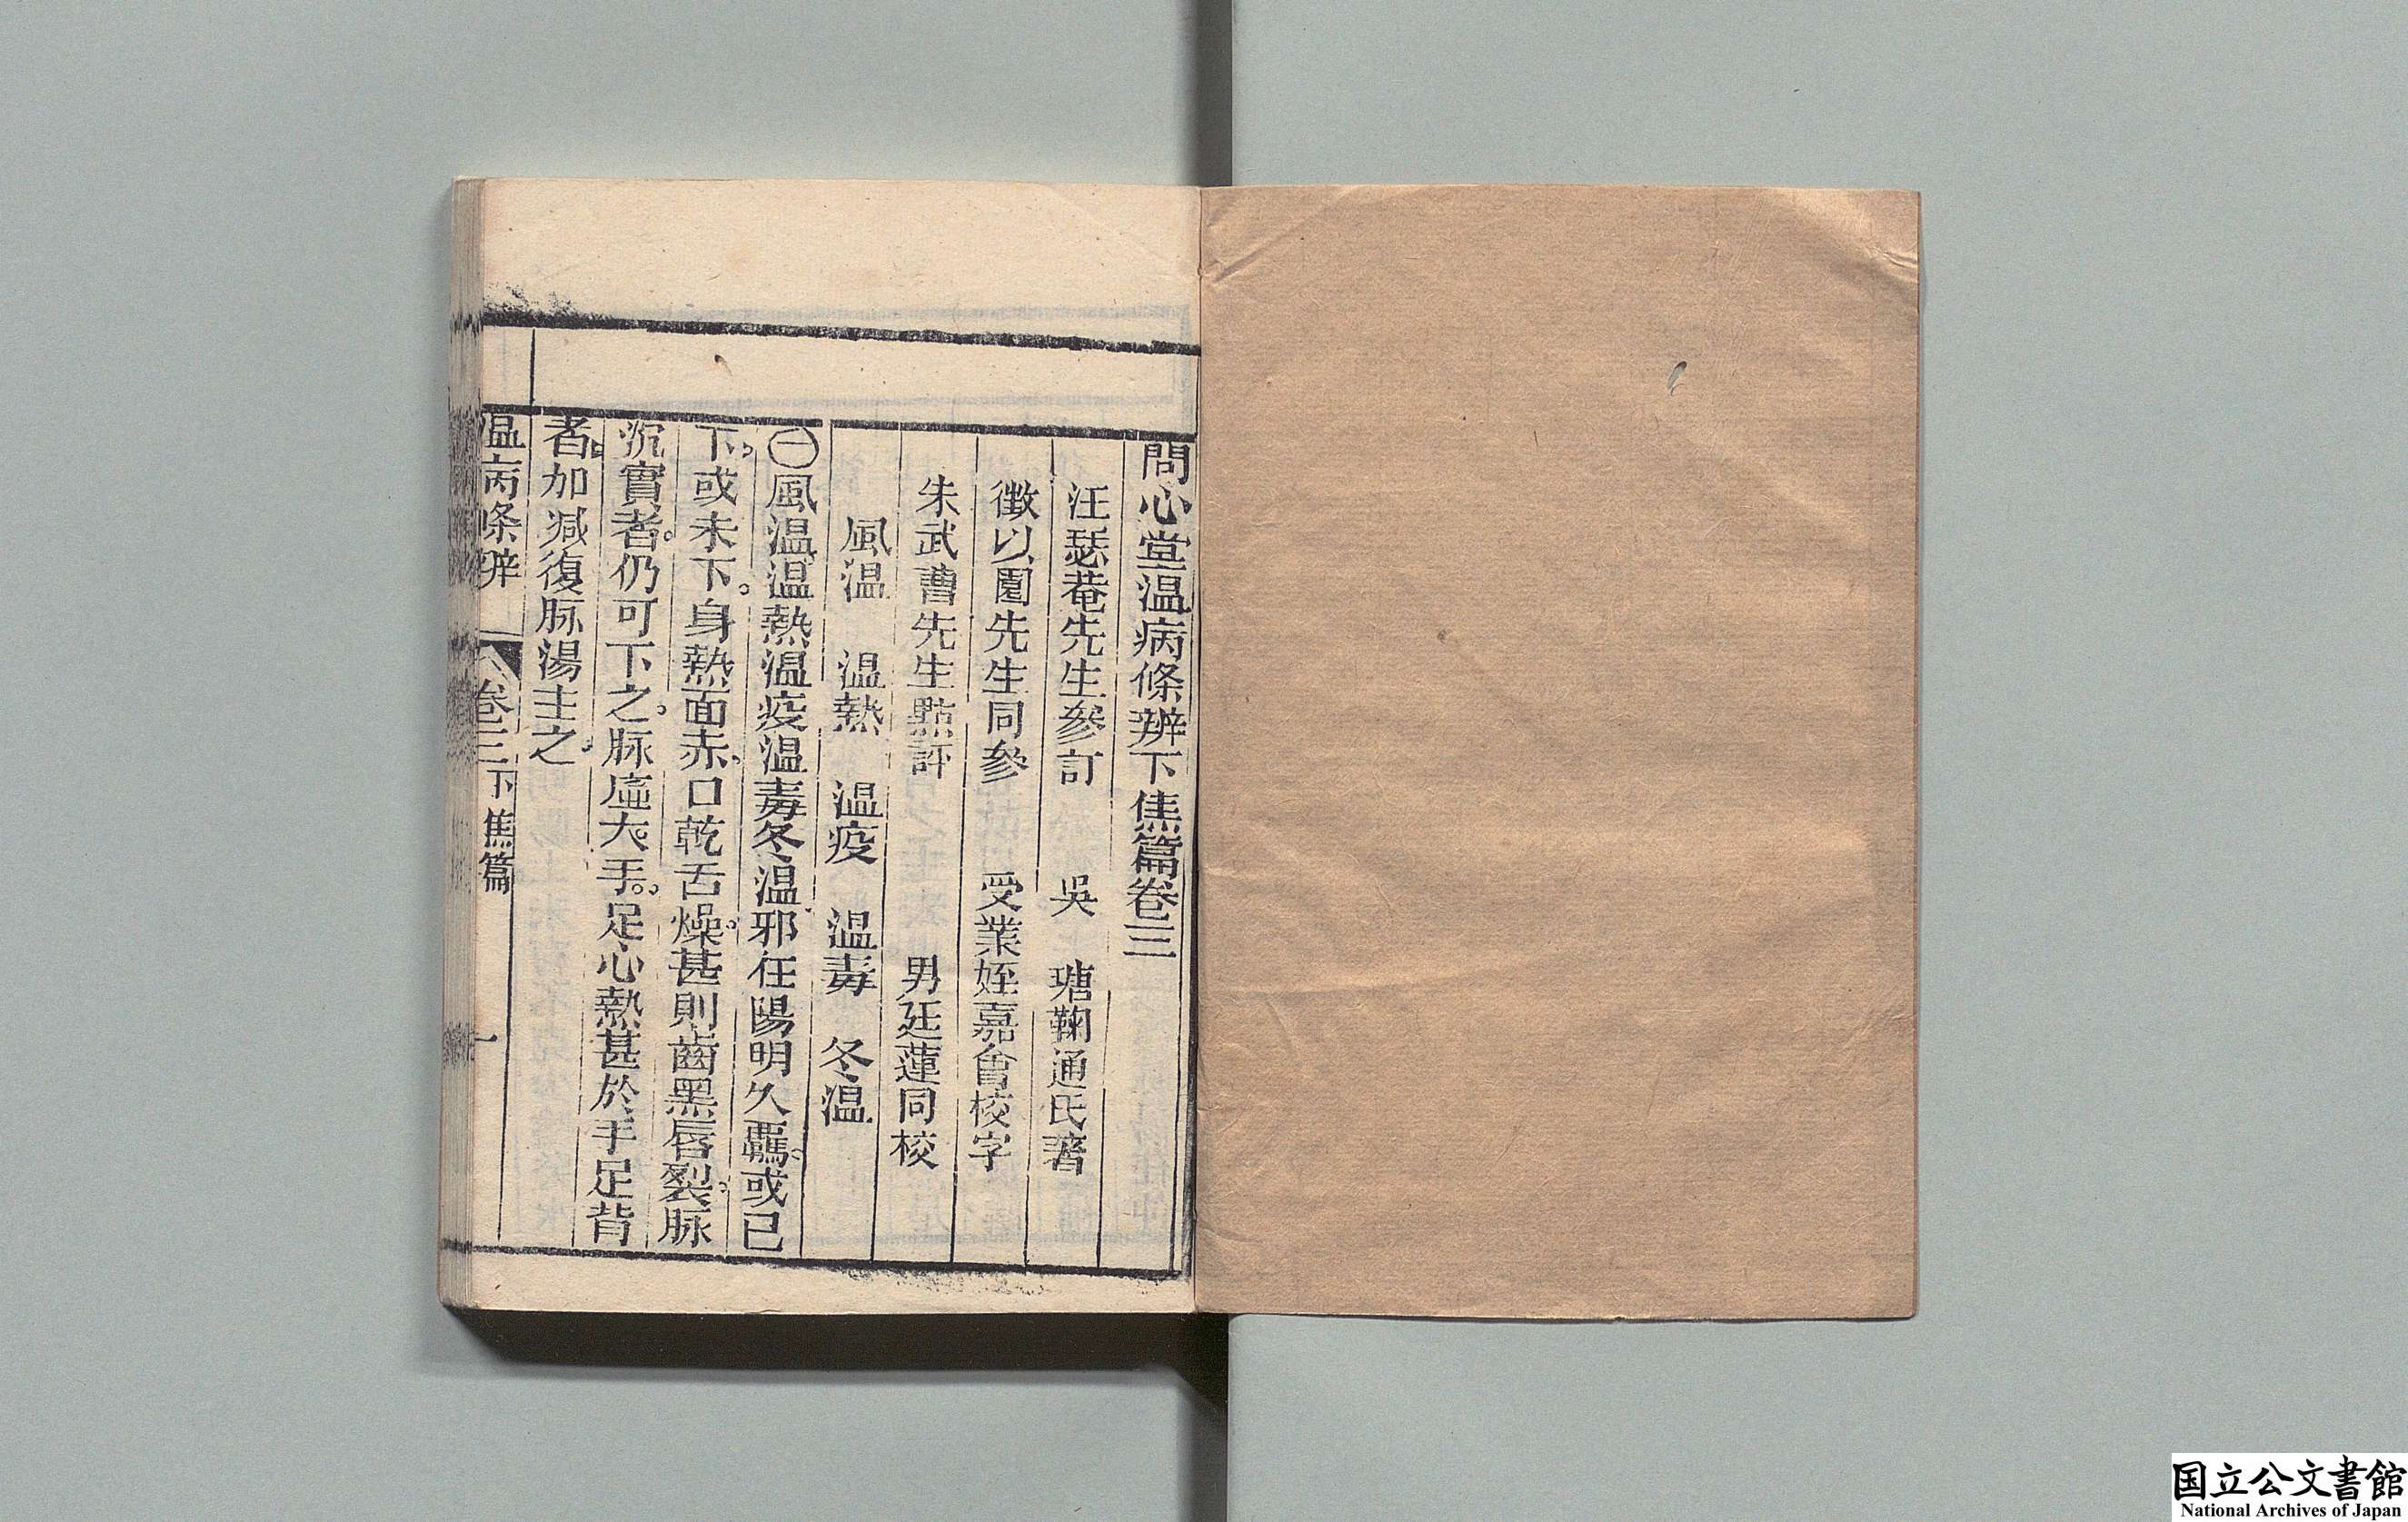 問心堂温病條辨下焦篇卷三
汪瑟菴先生參訂　吳　瑭鞠通氏著
徵以園先生同參　受業姪嘉會校字
朱武曹先生點評　男廷蓮同校
風温　温熱　温疫　温毒　冬温
㊀風温温熱温疫温毒冬温邪在陽明久羈。或已
下。或未下。身熱面赤。口乾舌燥。甚則齒黑唇裂。脉
沉實者。仍可下之。脉虛大。手。足心熱甚於手足背
者。加减復脉湯主之。
温病條辨　卷三下焦篇　一
国立公文書館
National Archives of Japan